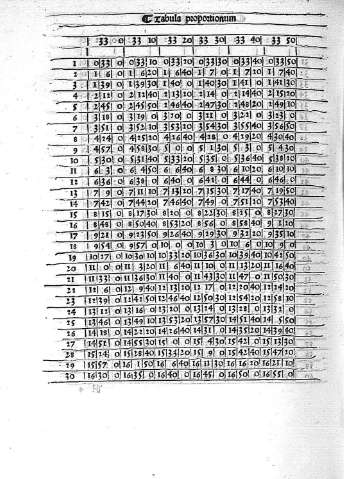 Tabula proportionum
33 0 33 10 33 20 33 30 33 40 33 50
1 0 33 0 0 33 10 0 33 20 0 33 30 0 33 40 0 33 50
2 1 6 0 1 6 20 1 6 40 1 7 0 1 7 20 1 7 40
3 1 39 0 1 39 30 1 40 0 1 40 30 1 41 0 1 41 30
4 2 12 0 2 12 40 2 13 20 2 14 0 2 14 40 2 15 20
5 2 45 0 2 45 50 2 46 40 2 47 30 2 48 20 2 49 10
6 3 18 0 3 19 0 3 20 0 3 21 0 3 22 0 3 23 0
7 3 51 0 3 52 10 3 53 20 3 54 30 3 55 40 3 56 50
8 4 24 0 4 25 20 4 26 40 4 28 0 4 29 20 4 30 40
9 4 57 0 4 58 30 5 0 0 5 1 30 5 3 0 5 4 30
10 5 30 0 5 31 40 5 33 20 5 35 0 5 36 40 5 38 20
11 6 3 0 6 4 50 6 6 40 6 8 30 6 10 20 6 12 10
12 6 36 0 6 38 0 6 40 0 6 42 0 6 44 0 6 46 0
13 7 9 0 7 11 10 7 13 20 7 15 30 7 17 40 7 19 50
14 7 42 0 7 44 20 7 46 40 7 49 0 7 51 20 7 53 40
15 8 15 0 8 17 30 8 20 0 8 22 30 8 25 0 8 27 30
16 8 48 0 8 50 40 8 53 20 8 56 0 8 58 40 9 1 20
17 9 21 0 9 23 50 9 26 40 9 29 30 9 32 20 9 35 10
18 9 54 0 9 57 0 10 0 0 10 3 0 10 6 0 10 9 0
19 10 27 0 10 30 10 10 33 20 10 36 30 10 39 40 10 42 50
20 11 0 0 11 3 20 11 6 40 11 10 0 11 13 20 11 16 40
21 11 33 0 11 36 30 11 40 0 11 43 30 11 47 0 11 50 30
22 12 6 0 12 9 40 12 13 20 12 17 0 12 20 40 12 24 20
23 12 39 0 12 42 50 12 46 40 12 50 30 12 54 20 12 58 10
24 13 12 0 13 16 0 13 20 0 13 24 0 13 28 0 13 32 0
25 13 46 0 13 49 10 13 53 20 13 57 30 14 1 40 14 5 50
26 14 18 0 14 22 20 14 26 40 14 31 0 14 35 20 14 39 40
27 14 51 0 14 55 30 15 0 0 15 4 30 15 42 0 15 13 30
28 15 24 0 15 28 40 15 33 20 15 9 0 15 42 40 15 47 20
29 15 57 0 16 1 50 16 6 40 16 11 30 16 16 20 16 21 10
30 16 30 0 16 35 0 16 40 0 16 45 0 16 50 0 16 55 0